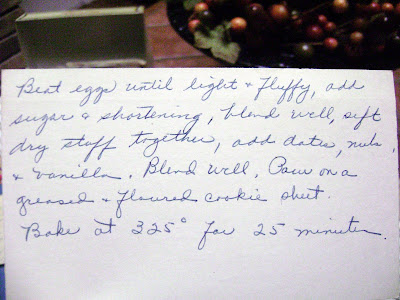 Beat eggs until light + fluffy, add
sugar & shortening, blend well, sift
dry stuff together, add dates, nuts,
+ vanilla. Blend well. Pour on a
greased + floured cookie sheet.
Bake at 325° for 25 minutes.